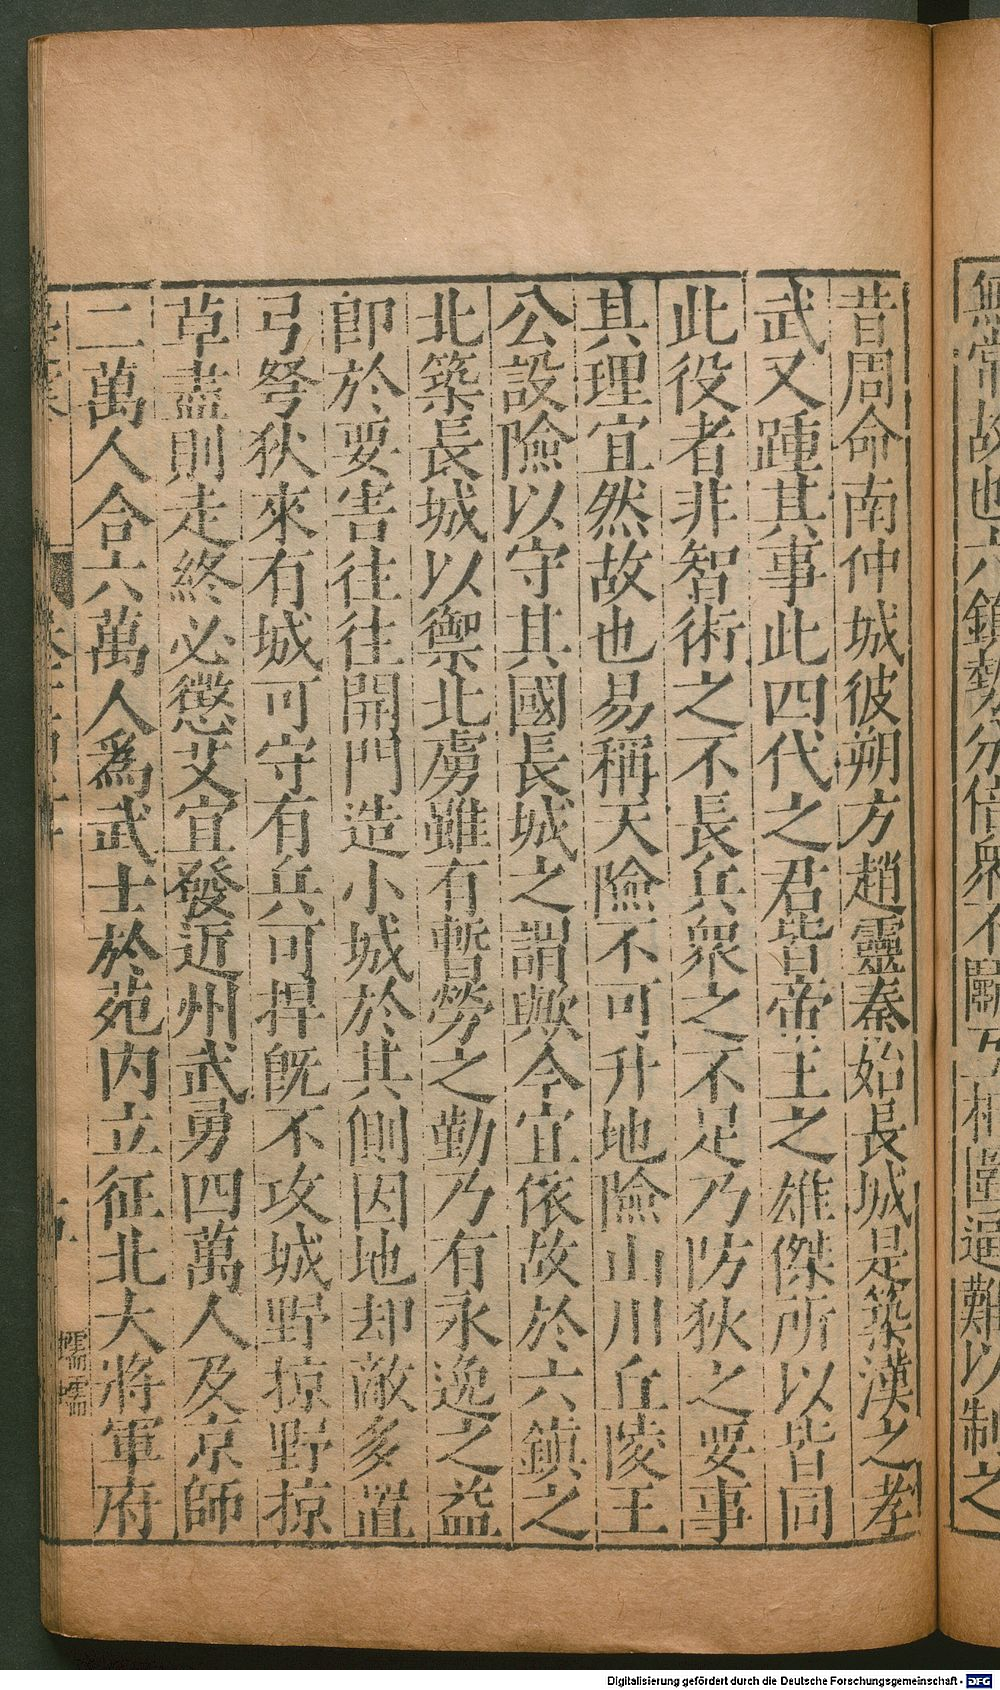 無常故也六鎮勢分倍衆不鬬互相圍逼難以制之
昔周命南仲城彼朔方趙靈秦始長城是築漢之孝
武又踵其事此四代之君皆帝王之雄傑所以皆同
此役者非智術之不長兵衆之不足乃防狄之要事
其理宜然故也易稱天險不可升地險山川丘陵王
公設險以守其國長城之謂歟今宜依故於六鎮之
北築長城以禦北虜雖有暫勞之勤乃有永逸之益
卽於要害往往開門造小城於其側因地却敵多置
弓弩狄來有城可守有兵可捍旣不攻城野掠野掠
草盡則走終必懲艾宜發近州武勇四萬人及京師
二萬人合六萬人爲武士於苑内立征北大將軍府
Digitalisierung gefördert durch die Deutsche Forschungsgemeinschaft - DFG